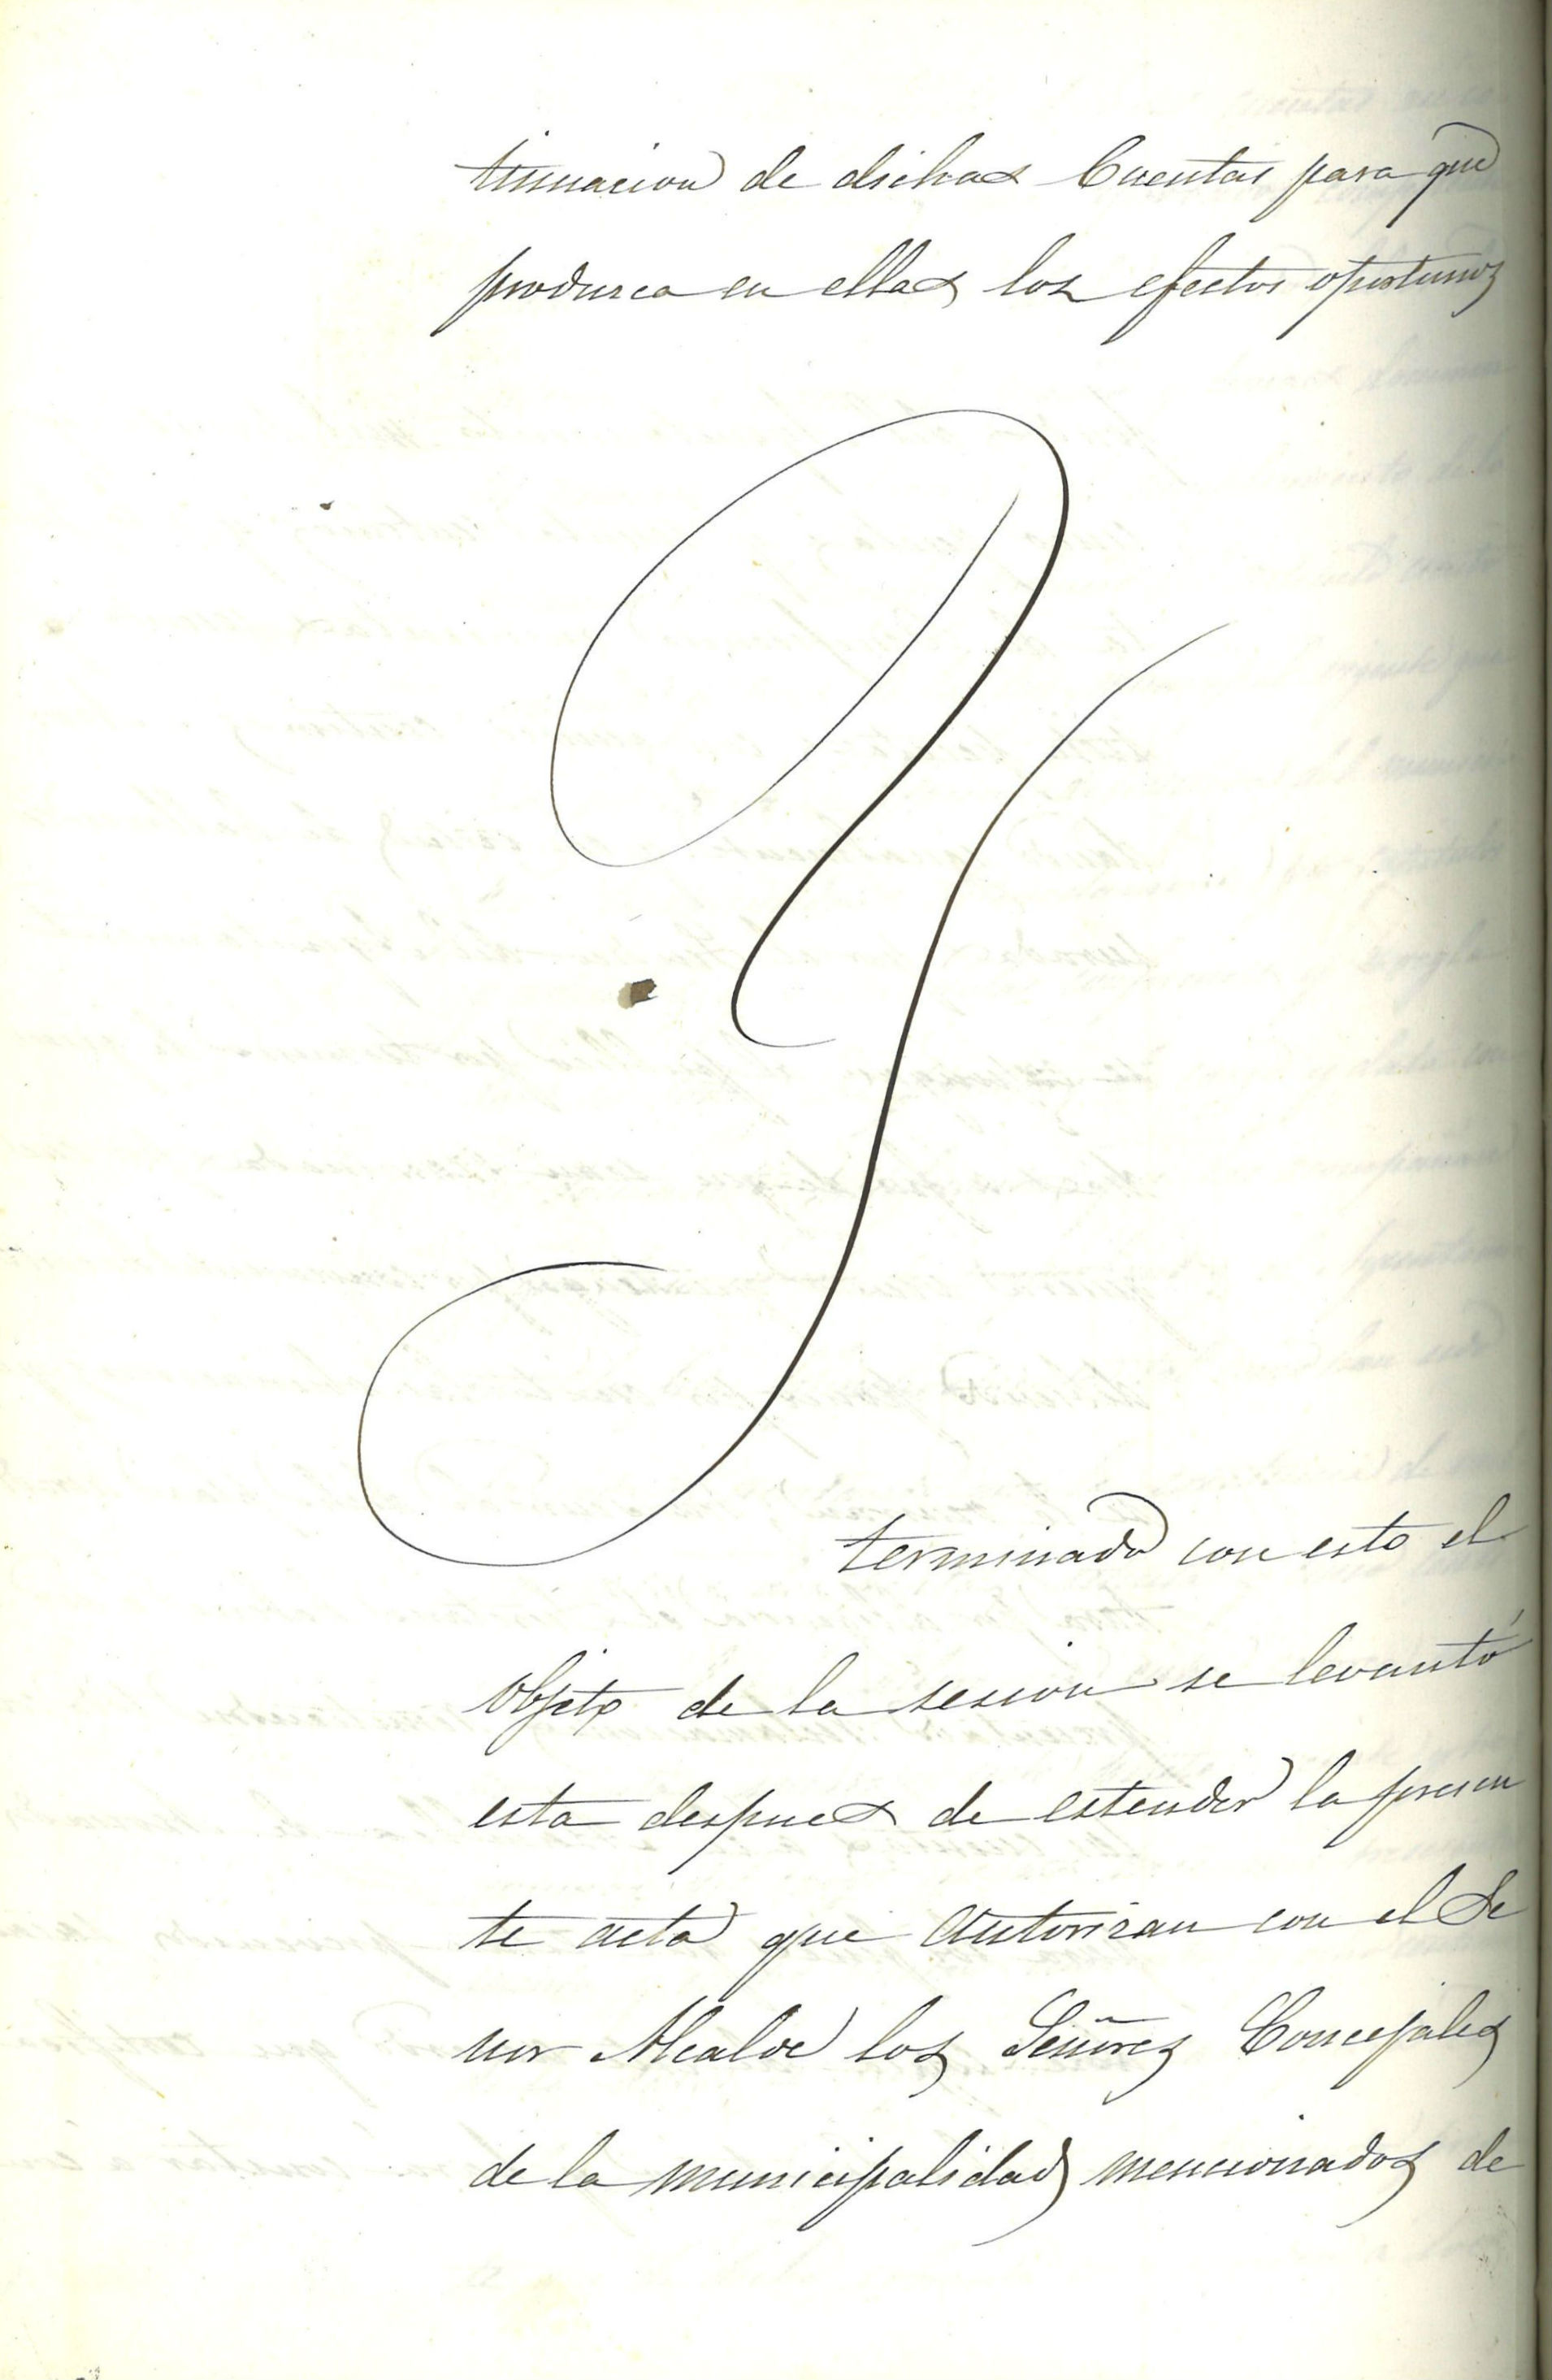 tinuacion de dichas Cuentas para que
produzca en ellas los efectos oportunos
Y
terminado con esto el
objeto de la sesion se levantó
esta despues de estender la presen
te acta que autorizan con el Se
nor Alcalde los Señores Concejales
de la municipalidad mencionados de